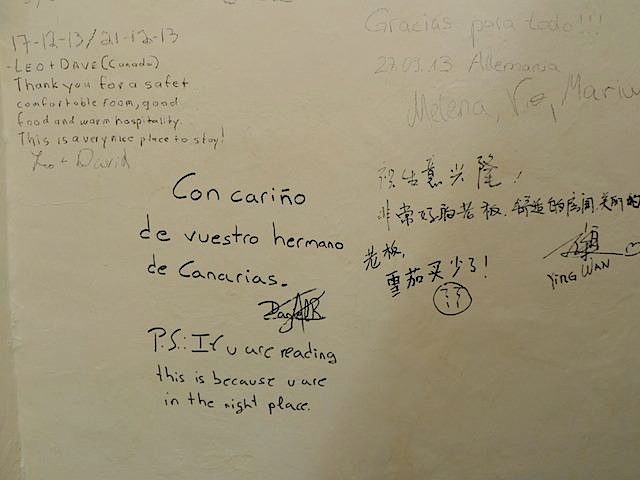 17-12-13/21-12-13
-LEO + DAVE (Canada)
Thank you for a safe &
comfortable room, good
food and warm hospitality.
This is a very nice place to stay!
Leo + David
Gracias para todo!!!
27.09.13 Allemania
Melena,
Con cariño
de vuestro hermano
de Canarias.
P.S.: If u are reading
this is because u are
in the right place.
祝生意兴隆!
非常好的老板,舒适的房间,美丽的
老板,
雪茄买少了!
YING WAN